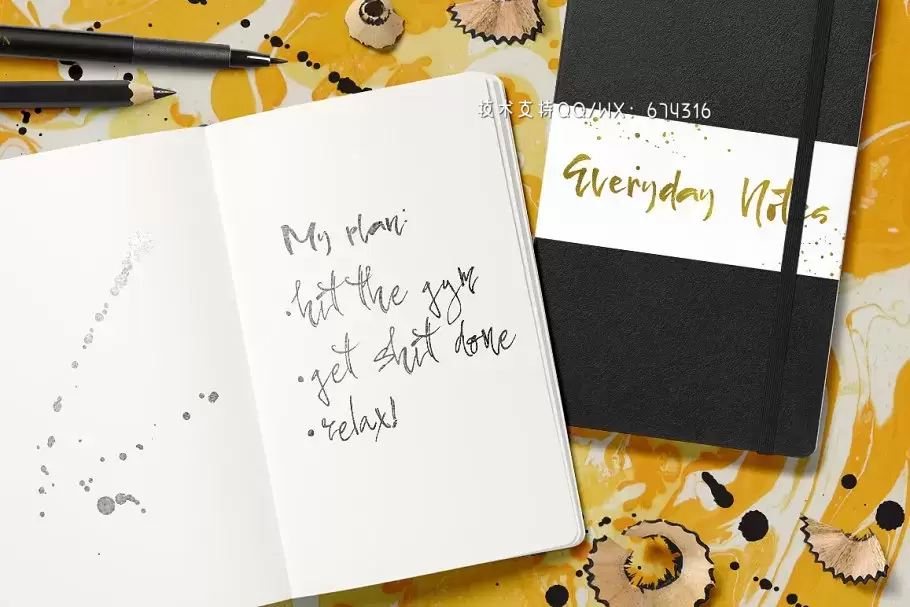 技术支持QQ/WX: 674316
Everyday Notes
My plan:
•hit the gym
•get shit done
•relax!